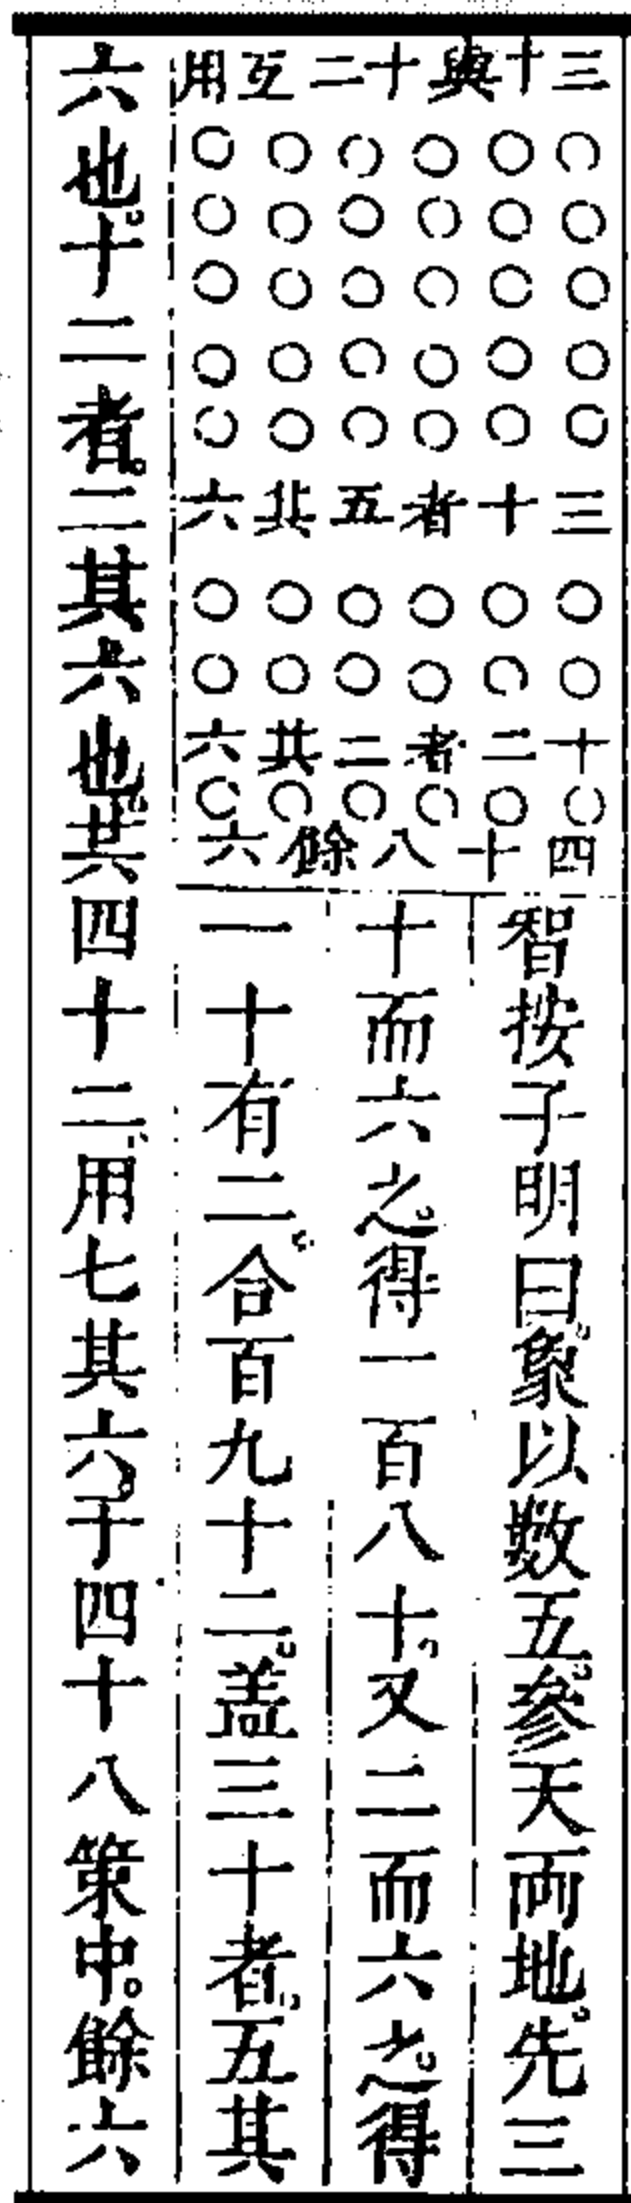 三十與十二互用
三十者五其六
十二者二其六
四十八餘六
智按子明曰。象以數五。參天両地。先三
十而六之。得一百八十。又二而六之。得
一十有二。合百九十二。盖三十者。五其
六也。十二者。二其六也。共四十二。用七其六。于四十八策中。餘六